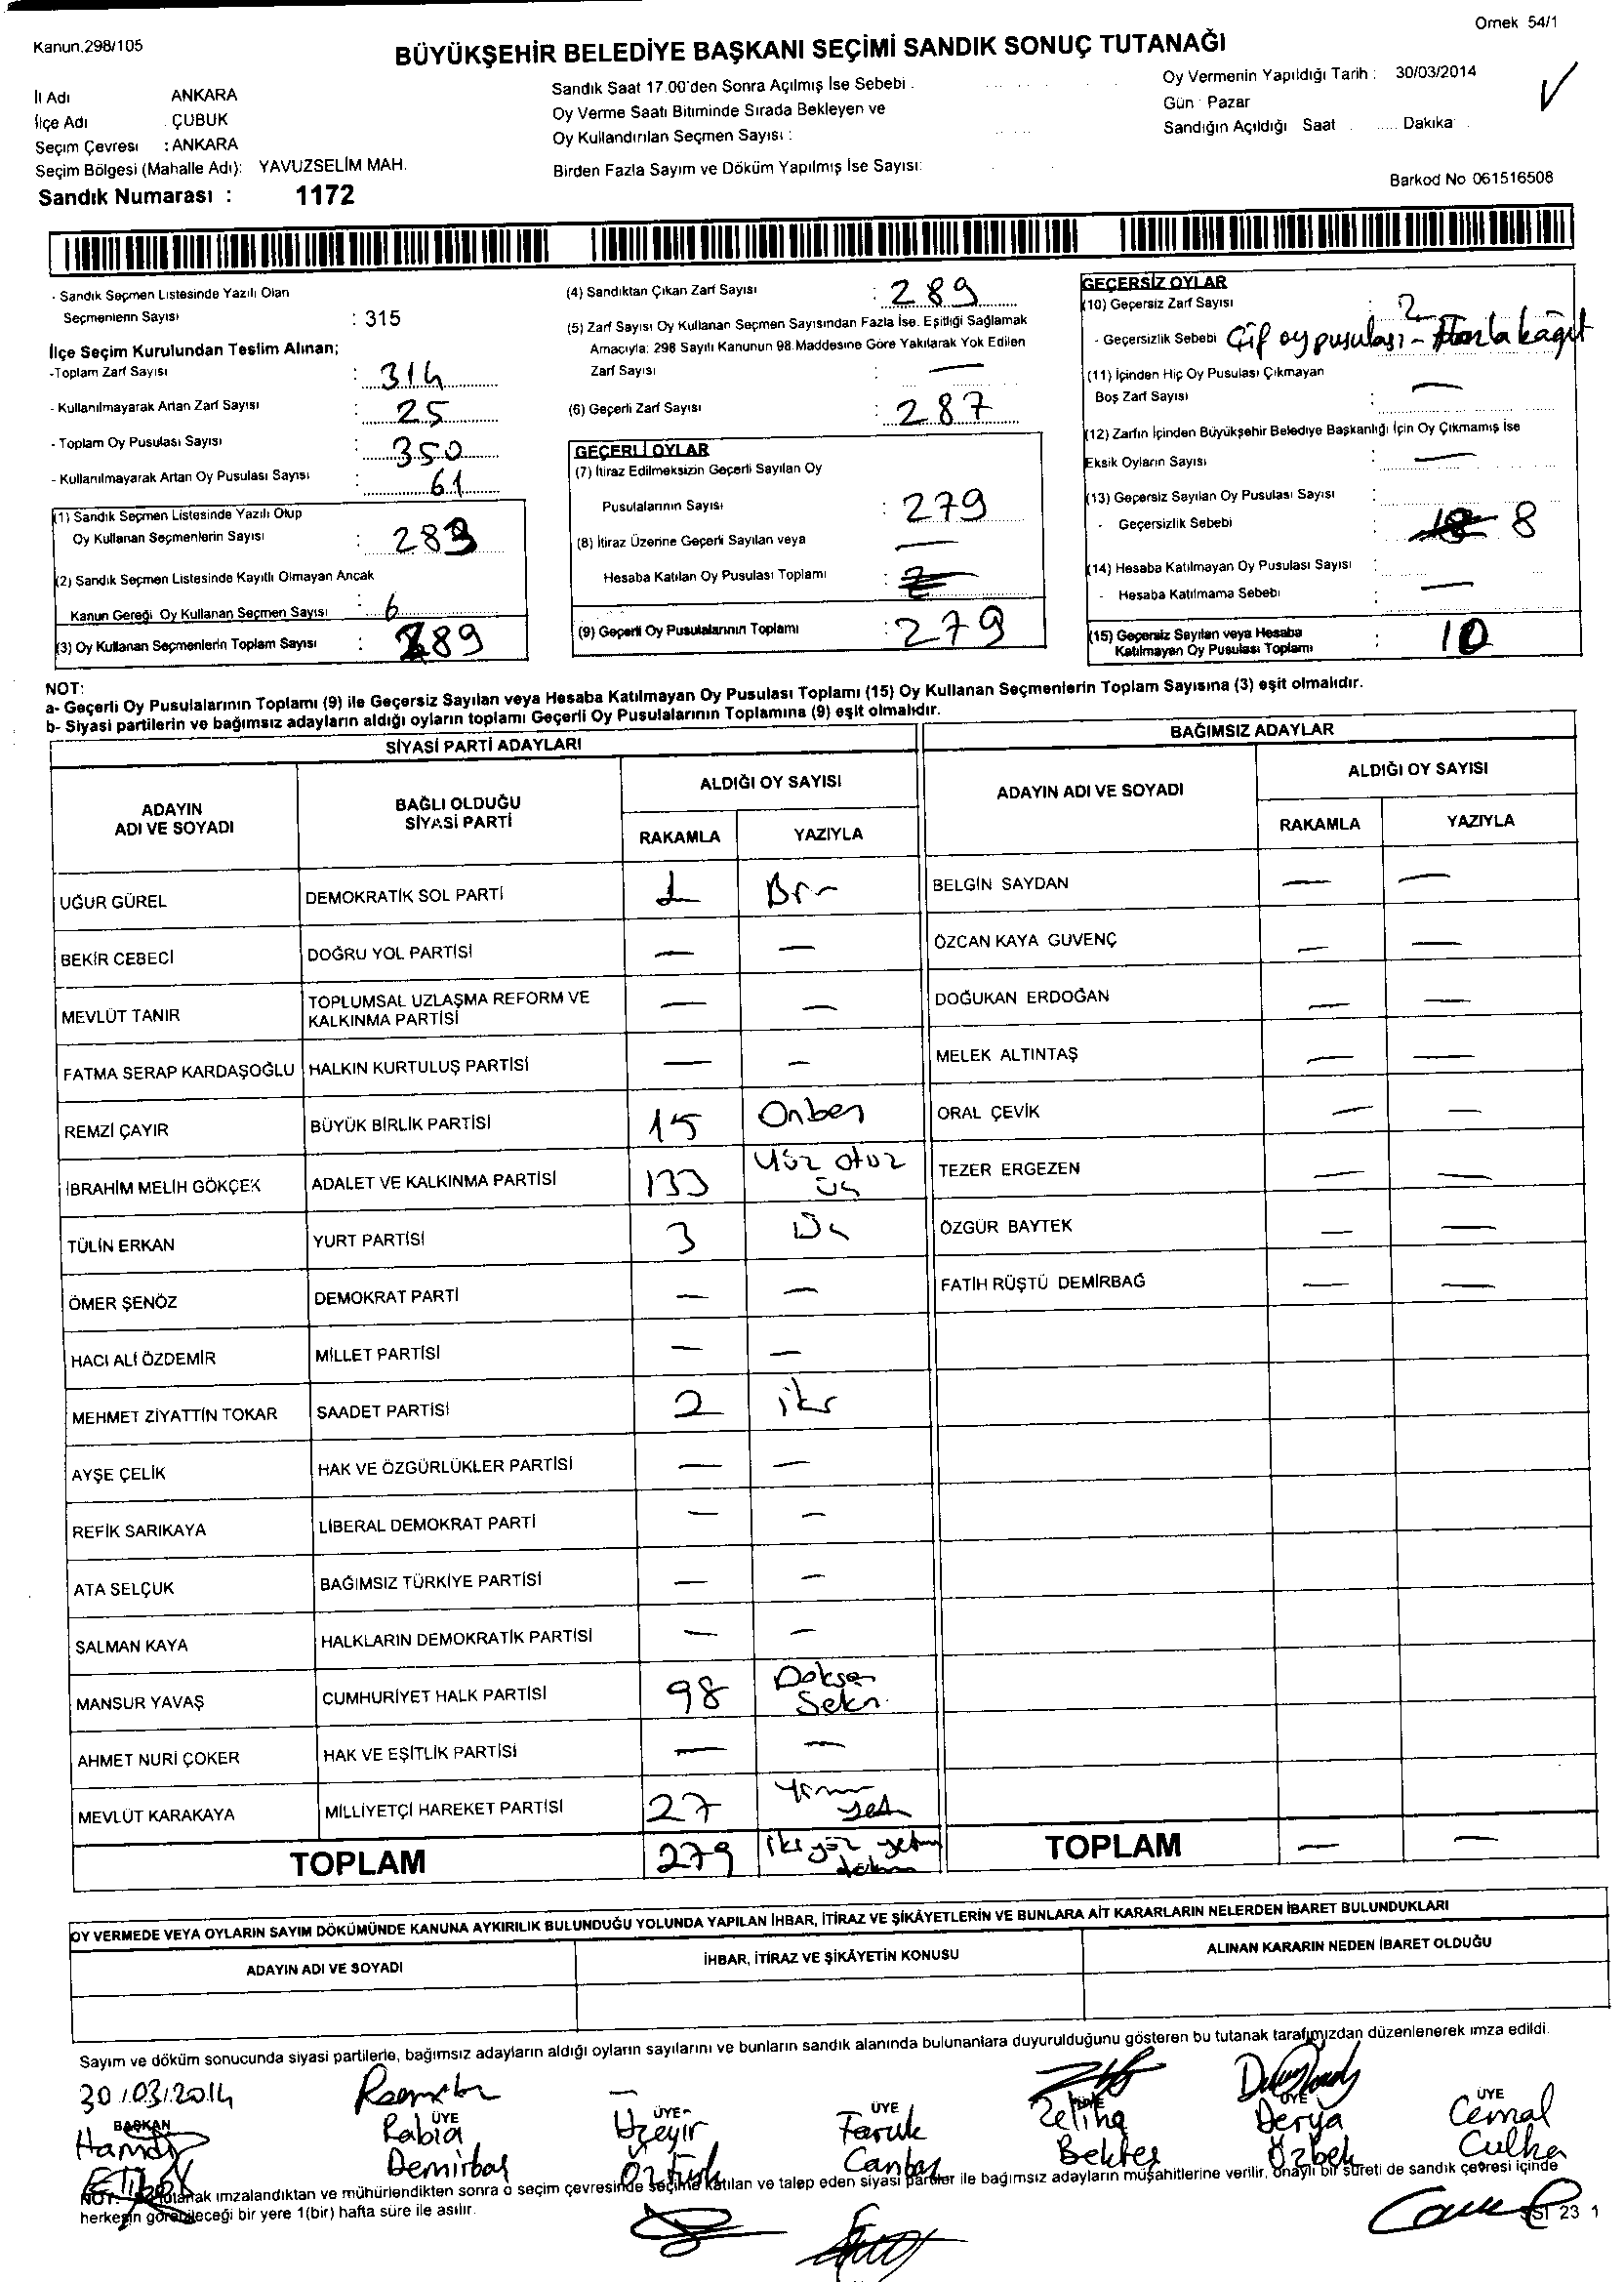 Ornek 54/1
Kanun.298/105
BÜYÜKŞEHİR BELEDİYE BAŞKANI SEÇİMİ SANDIK SONUÇ TUTANAĞI
İl Adı ANKARA
İlçe Adı ÇUBUK
Seçim Çevresi : ANKARA
Seçim Bölgesi (Mahalle Adı): YAVUZSELİM MAH.
Sandık Numarası : 1172
Sandık Saat 17.00'den Sonra Açılmış İse Sebebi .
Oy Verme Saati Bitiminde Sırada Bekleyen ve
Oy Kullandırılan Seçmen Sayısı :
Birden Fazla Sayım ve Döküm Yapılmış İse Sayısı:
Oy Vermenin Yapıldığı Tarih : 30/03/2014
Gün : Pazar
Sandığın Açıldığı Saat ..... Dakika
Barkod No 061516508
- Sandık Seçmen Listesinde Yazılı Olan
Seçmenlerin Sayısı : 315
İlçe Seçim Kurulundan Teslim Alınan;
-Toplam Zarf Sayısı : 314
- Kullanılmayarak Artan Zarf Sayısı : 25
- Toplam Oy Pusulası Sayısı : 350
- Kullanılmayarak Artan Oy Pusulası Sayısı : 61
(1) Sandık Seçmen Listesinde Yazılı Olup
Oy Kullanan Seçmenlerin Sayısı : 283
(2) Sandık Seçmen Listesinde Kayıtlı Olmayan Ancak
Kanun Gereği Oy Kullanan Seçmen Sayısı : 6
(3) Oy Kullanan Seçmenlerin Toplam Sayısı : 289
(4) Sandıktan Çıkan Zarf Sayısı : 289
(5) Zarf Sayısı Oy Kullanan Seçmen Sayısından Fazla İse. Eşitliği Sağlamak
Amacıyla; 298 Sayılı Kanunun 98.Maddesine Göre Yakılarak Yok Edilen
Zarf Sayısı : —
(6) Geçerli Zarf Sayısı : 287
GEÇERLİ OYLAR
(7) İtiraz Edilmeksizin Geçerli Sayılan Oy
Pusulalarının Sayısı : 279
(8) İtiraz Üzerine Geçerli Sayılan veya —
Hesaba Katılan Oy Pusulası Toplamı :
(9) Geçerli Oy Pusulalarının Toplamı : 279
GEÇERSİZ OYLAR
(10) Geçersiz Zarf Sayısı : 2
- Geçersizlik Sebebi Çif oy pusulası - Fazla kağıt
(11) İçinden Hiç Oy Pusulası Çıkmayan
Boş Zarf Sayısı : —
(12) Zarfın İçinden Büyükşehir Belediye Başkanlığı İçin Oy Çıkmamış İse
Eksik Oyların Sayısı : —
(13) Geçersiz Sayılan Oy Pusulası Sayısı :
- Geçersizlik Sebebi : 8
(14) Hesaba Katılmayan Oy Pusulası Sayısı :
- Hesaba Katılmama Sebebi : —
(15) Geçersiz Sayılan veya Hesaba
Katılmayan Oy Pusulası Toplamı : 10
NOT:
a- Geçerli Oy Pusulalarının Toplamı (9) ile Geçersiz Sayılan veya Hesaba Katılmayan Oy Pusulası Toplamı (15) Oy Kullanan Seçmenlerin Toplam Sayısına (3) eşit olmalıdır.
b- Siyasi partilerin ve bağımsız adayların aldığı oyların toplamı Geçerli Oy Pusulalarının Toplamına (9) eşit olmalıdır.
SİYASİ PARTİ ADAYLARI
ADAYIN ADI VE SOYADI BAĞLI OLDUĞU SİYASİ PARTİ ALDIĞI OY SAYISI
RAKAMLA YAZIYLA
UĞUR GÜREL DEMOKRATİK SOL PARTİ 1 Bir
BEKİR CEBECİ DOĞRU YOL PARTİSİ — —
MEVLÜT TANIR TOPLUMSAL UZLAŞMA REFORM VE KALKINMA PARTİSİ — —
FATMA SERAP KARDAŞOĞLU HALKIN KURTULUŞ PARTİSİ — —
REMZİ ÇAYIR BÜYÜK BİRLİK PARTİSİ 15 Onbeş
İBRAHİM MELİH GÖKÇEK ADALET VE KALKINMA PARTİSİ 133 Yüz otuz üç
TÜLİN ERKAN YURT PARTİSİ 3 Üç
ÖMER ŞENÖZ DEMOKRAT PARTİ — —
HACI ALİ ÖZDEMİR MİLLET PARTİSİ — —
MEHMET ZİYATTİN TOKAR SAADET PARTİSİ 2 iki
AYŞE ÇELİK HAK VE ÖZGÜRLÜKLER PARTİSİ — —
REFİK SARIKAYA LİBERAL DEMOKRAT PARTİ — —
ATA SELÇUK BAĞIMSIZ TÜRKİYE PARTİSİ — —
SALMAN KAYA HALKLARIN DEMOKRATİK PARTİSİ — —
MANSUR YAVAŞ CUMHURİYET HALK PARTİSİ 98 Doksan Sekiz
AHMET NURİ ÇOKER HAK VE EŞİTLİK PARTİSİ — —
MEVLÜT KARAKAYA MİLLİYETÇİ HAREKET PARTİSİ 27 Yirmi yedi
TOPLAM 279 iki yüz yetmiş dokuz
BAĞIMSIZ ADAYLAR
ADAYIN ADI VE SOYADI ALDIĞI OY SAYISI
RAKAMLA YAZIYLA
BELGİN SAYDAN — —
ÖZCAN KAYA GUVENÇ — —
DOĞUKAN ERDOĞAN — —
MELEK ALTINTAŞ — —
ORAL ÇEVİK — —
TEZER ERGEZEN — —
ÖZGÜR BAYTEK — —
FATİH RÜŞTÜ DEMİRBAĞ — —
TOPLAM — —
OY VERMEDE VEYA OYLARIN SAYIM DÖKÜMÜNDE KANUNA AYKIRILIK BULUNDUĞU YOLUNDA YAPILAN İHBAR, İTİRAZ VE ŞİKÂYETLERİN VE BUNLARA AİT KARARLARIN NELERDEN İBARET BULUNDUKLARI
ADAYIN ADI VE SOYADI İHBAR, İTİRAZ VE ŞİKÂYETİN KONUSU ALINAN KARARIN NEDEN İBARET OLDUĞU
Sayım ve döküm sonucunda siyasi partilerle, bağımsız adayların aldığı oyların sayılarını ve bunların sandık alanında bulunanlara duyurulduğunu gösteren bu tutanak tarafımızdan düzenlenerek imza edildi.
30/03/2014
BAŞKAN ÜYE ÜYE ÜYE ÜYE ÜYE ÜYE
Hamdi Rabia Üzeyir Faruk Zeliha Derya Cemal
Demirbaş Öztürk Canbaş Bektaş Özbek Culha
NOT: Bu tutanak imzalandıktan ve mühürlendikten sonra o seçim çevresinde seçime katılan ve talep eden siyasi partiler ile bağımsız adayların müşahitlerine verilir, onaylı bir sureti de sandık çevresi içinde
herkesin görebileceği bir yere 1(bir) hafta süre ile asılır.
23 1